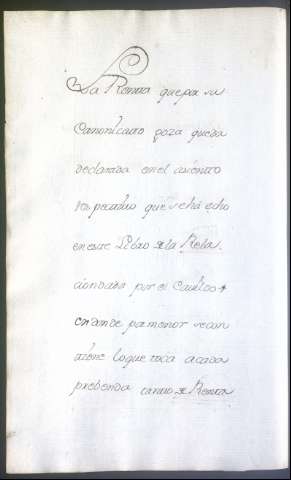 La Renta que por su
Canonicato goza queda
declarada en el asiento
respectibo que se há echo
en este Libro de la Rela
cion dada por el Cavildo
en donde por menor se con
tiene lo que toca a cada
prebenda tanto de Renta